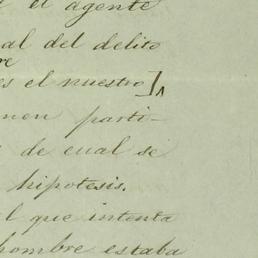 el agente
al del delito
es el nuestro]
men parti-
de cual se
hipotesis.
l que intenta
hombre estaba